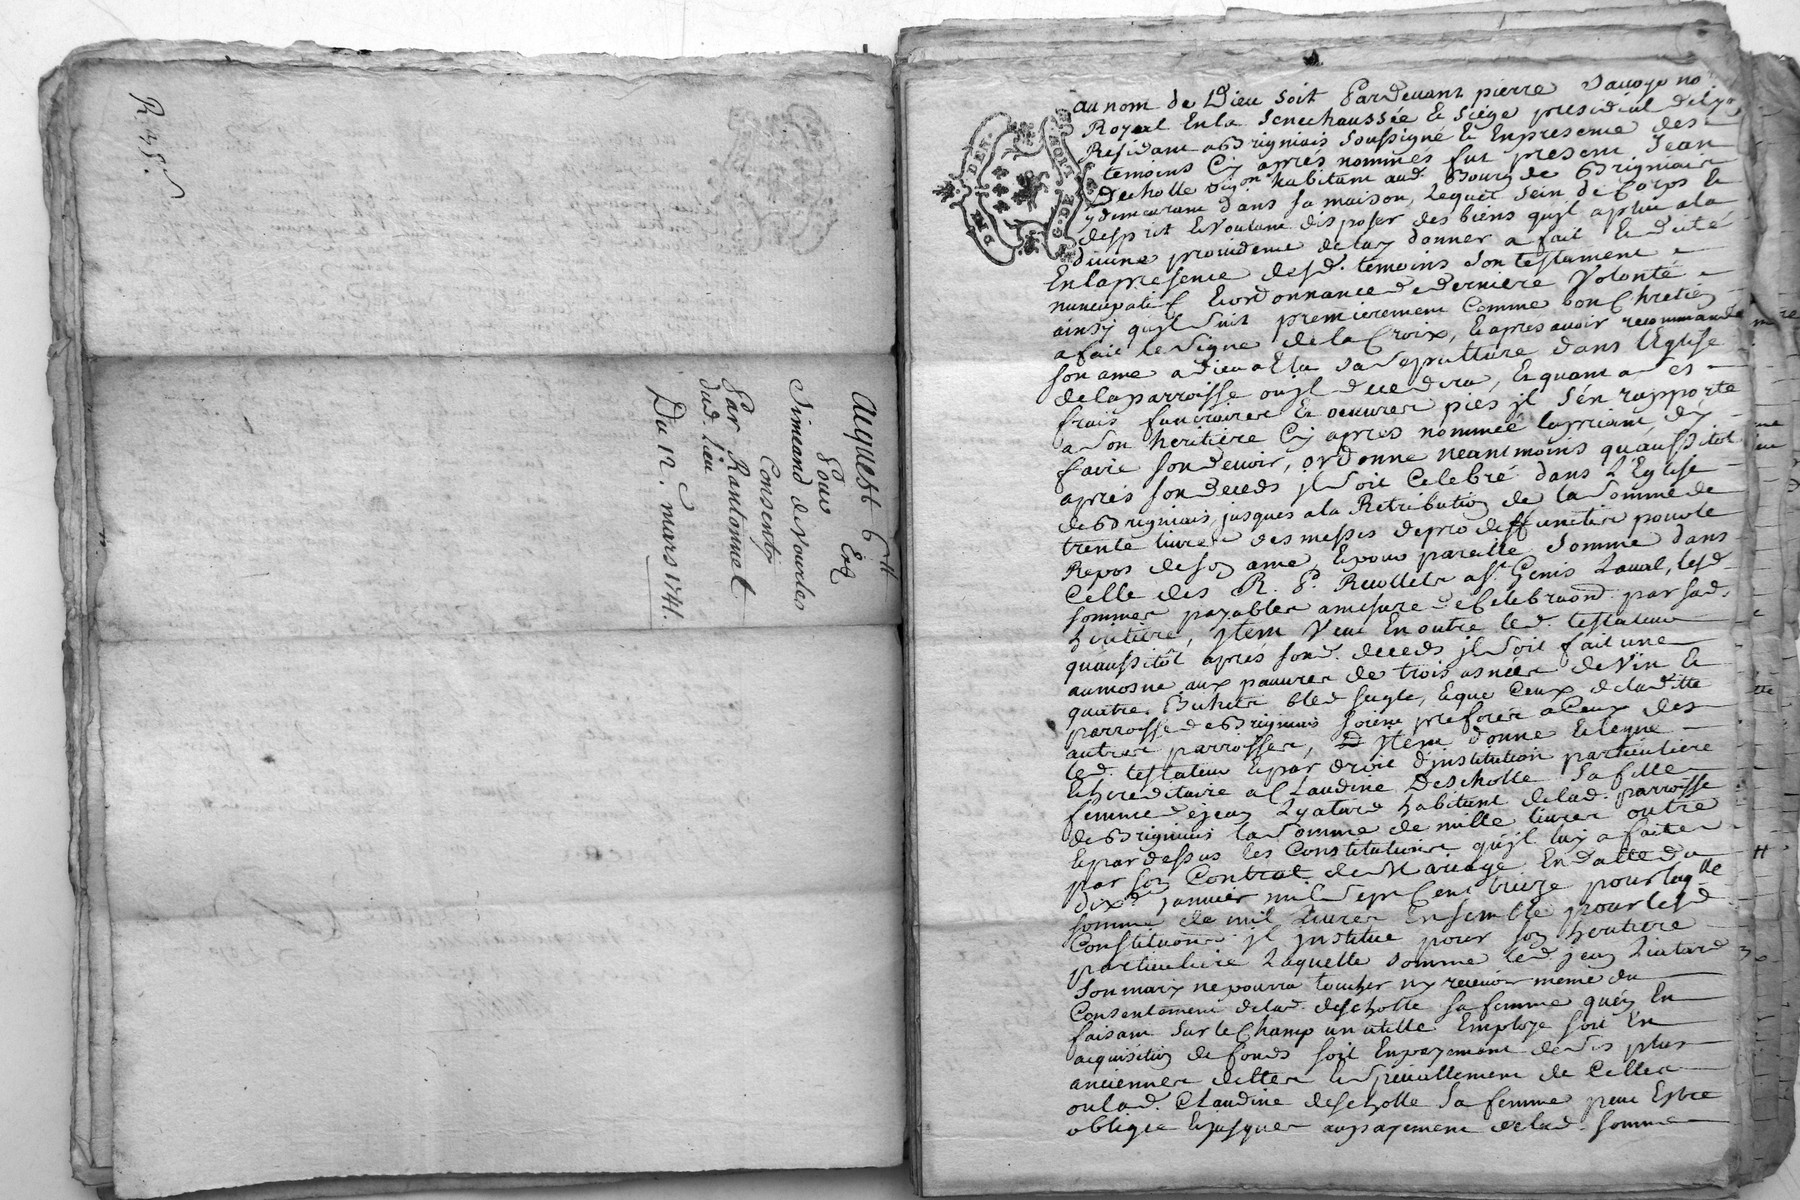 R 45.s
acquest 6ll
Pour Erq
Simeand de Vourles
Consenty
Par Rantonnet
dud. Lieu
Du 12. mars 1741.
GEN.
DE
au nom de Dieu soit Pardevant pierre Savoye no
Royal En la Senechaussée & siège presidial de Lyon
Residant a Brigniais soussigné & En presence des
temoins Cy apres nommés fut present Jean
Descholle habitant aud. Bourg de Brigniais
y demeurant dans sa maison, Lequel sein de Corps &
desprit & voulant disposer des biens quyl a plu a la
divine providence de luy donner a fait & dicté
En la presence desd. temoins son testament
nuncupatif & ordonnance de derniere Volonté
ainsy quyl suit premierement Comme bon Chretien
a fait le signe de la Croix, & apres avoir recommandé
son ame a dieu a Elu sa sepulture dans lEglise
de la parroisse ou jl decedera, & quant a ses
frais funeraires & oeuvres pies jl s'en rapporte
a son heritiere Cy apres nommée la priant d'y
faire son devoir, ordonne neantmoins quaussitot
aprés son deceds jl soit Celebré dans l'Eglise
de Brigniais, jusques a la Retribution de la somme de
trente livres des messes de pro deffunctis pour le
Repos de son ame, & pour pareille somme dans
Celle des R. P. Recollets a St. Genis Laval, lesd.
sommes payables amesure de Celebraon. par sad.
heritiere, jtem Veut En outre led. testateur
quaussitôt aprés sond. deceds jl soit fait une
aumosne aux pauvres de trois asnées de Vin &
quatre Bichets bled seigle, & que Ceux de laditte
parroisse de Brigniais soient preferés a Ceux des
autres parroisses, jtem donne & legue
led. testateur & par droit d'institution particuliere
& hereditaire a Claudine Descholle sa fille
femme de jean Lyatard habitant de lad. parroisse
de Brigniais la somme de mille livres outre
& par dessus les Constitutions quyl luy a faites
par son Contrat de Mariage En datte du
dixe. janvier mil sept Cent treize pour laqlle
somme de mil livres Ensemble pour lesd.
Constitutions jl jnstitue pour son heritiere
particuliere Laquelle somme led. jean Liatard
son mary ne pourra toucher ny recevoir meme du
Consentement de lad. descholle sa femme qu'en En
faisant sur le Champ un utille Employe soit En
acquisition de fonds soit En payement de ses plus
anciennes dettes & speciallement de Celles
ou lad. Claudine descholle sa femme peut Estre
obligée & jusques au payement de lad. somme